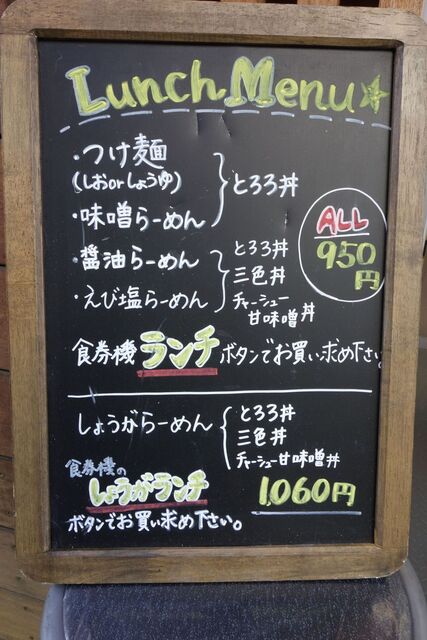 Lunch Menu
・つけ麺
(しおorしょうゆ)
・味噌らーめん
とろろ丼
ALL
950
円
・醤油らーめん
・えび塩らーめん
とろろ丼
三色丼
チャーシュー
甘味噌丼
食券機ランチボタンでお買い求め下さい。
しょうがらーめん
とろろ丼
三色丼
チャーシュー甘味噌丼
食券機の
しょうがランチ
1,060円
ボタンでお買い求め下さい。